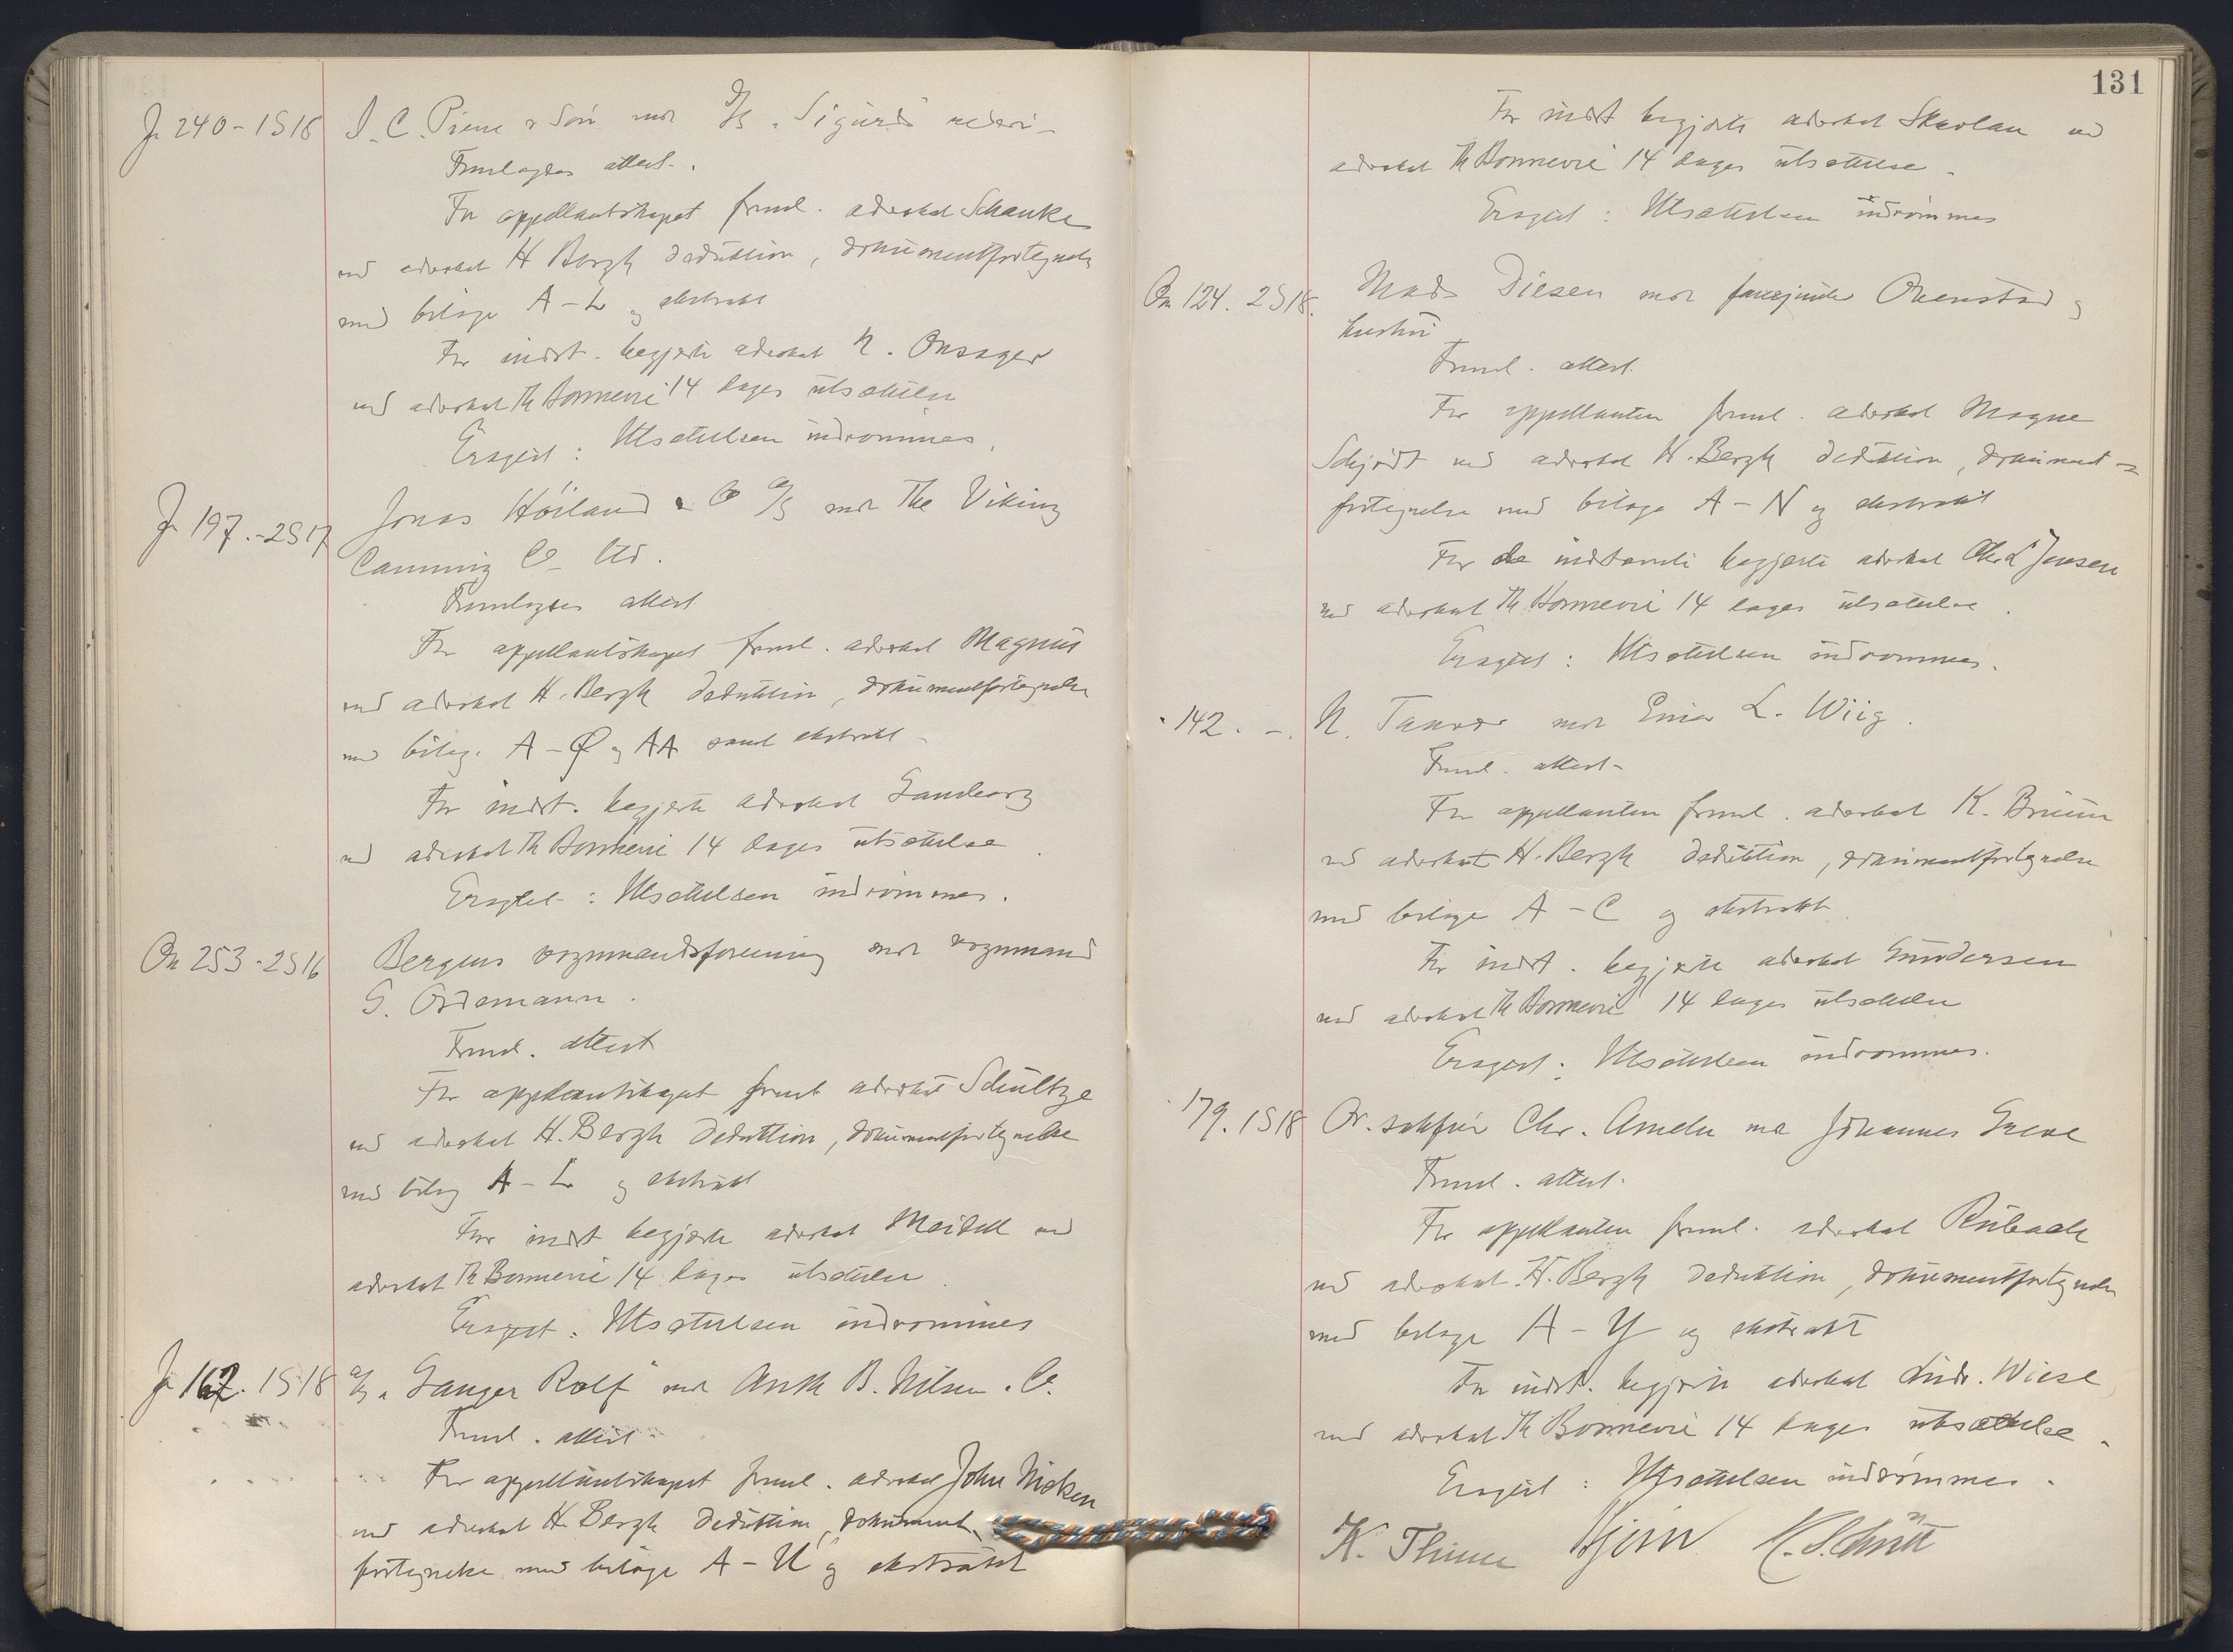 Jr 240 - 1S18 J. C. Piene & Søn mot A/S "Sigurds rederi -
Fremlagdes attest.
For appellantskapet freml. advokat Schanke
ved advokat H Bergh deduktion, dokumentfortegnelse
med bilage A - L og ekstrakt
For indst. begjærte advokat N. Onsager
ved advokat Th Bonnevie 14 dages utsættelse
Eragtet: Utsættelsen indrømmes.
Jr 197. - 2S17 Jonas Höiland & Co A/S mot The Viking
Canning Co Ltd.
Fremlagdes attest
For appellantskapet freml. advokat Magnus
ved advokat H. Bergh deduktion, dokumentfortegnelse
med bilag. A - Ø og AA samt ekstrakt -
For indst. begjærte advokat Sandberg
ved advokat Th Bonnevie 14 dages utsættelse.
Eragtet: Utsættelsen indrømmes.
On 253 - 2S16 Bergens vognmandsforening mot vognmand
G. Ordemann.
Freml. attest
For appellantskapet freml advokat Schultze
ved advokat H. Bergh deduktion, dokumentfortegnelse
med bilag A - L og ekstrakt
For indst begjærte advokat Meidell ved
advokat Th Bonnevie 14 dages utsættelse.
Eragtet: Utsættelsen indrømmes
Jr 162. 1S18 A/S "Ganger Rolf mot Anth B. Nilsen & Co.
Freml. attest -
For appellantskapet freml. advokat John Nisken
ved advokat H. Bergh deduktion, dokument-
fortegnelse med bilage A - U og ekstrakt
131
For indst begjærte advokat Skavlan ved
advokat Th Bonnevie 14 dages utsættelse.
Eragtet: Utsættelsen indrømmes
On 124. 2S18. Mads Diesen mot Ovenstad og
hustru
Freml. attest.
For appellanten freml. advokat Magne
Schjødt ved advokat H. Bergh deduktion, dokument-
fortegnelse med bilage A - N og ekstrakt
For de indstevnte begjærte advokat Chr. L Jensen
ved advokat Th Bonnevie 14 dages utsættelse.
Eragtet: Utsættelsen indrømmes.
" 142. - . N. mot Einar L. Wiig.
Freml. attest -
For appellanten freml. advokat K. Bruun
ved advokat H. Bergh deduktion, dokumentfortegnelse
med bilage A - C og ekstrakt
For indst. begjærte advokat Gundersen
ved advokat Th Bonnevie 14 dages utsættelse
Eragtet: Utsættelsen indrømmes.
" 179. 1S18 Or. sakfør Chr. Ameln mot Johannes Greve
Freml. attest.
For appellanten freml. advokat Rubach
ved advokat H. Bergh deduktion, dokumentfortegnelse
med bilage A - Y og ekstrakt
For indst. begjærte advokat Andr. Wiese
ved advokat Th Bonnevie 14 dages utsættelse.
Eragtet: Utsættelsen indrømmes.
K. Thinn